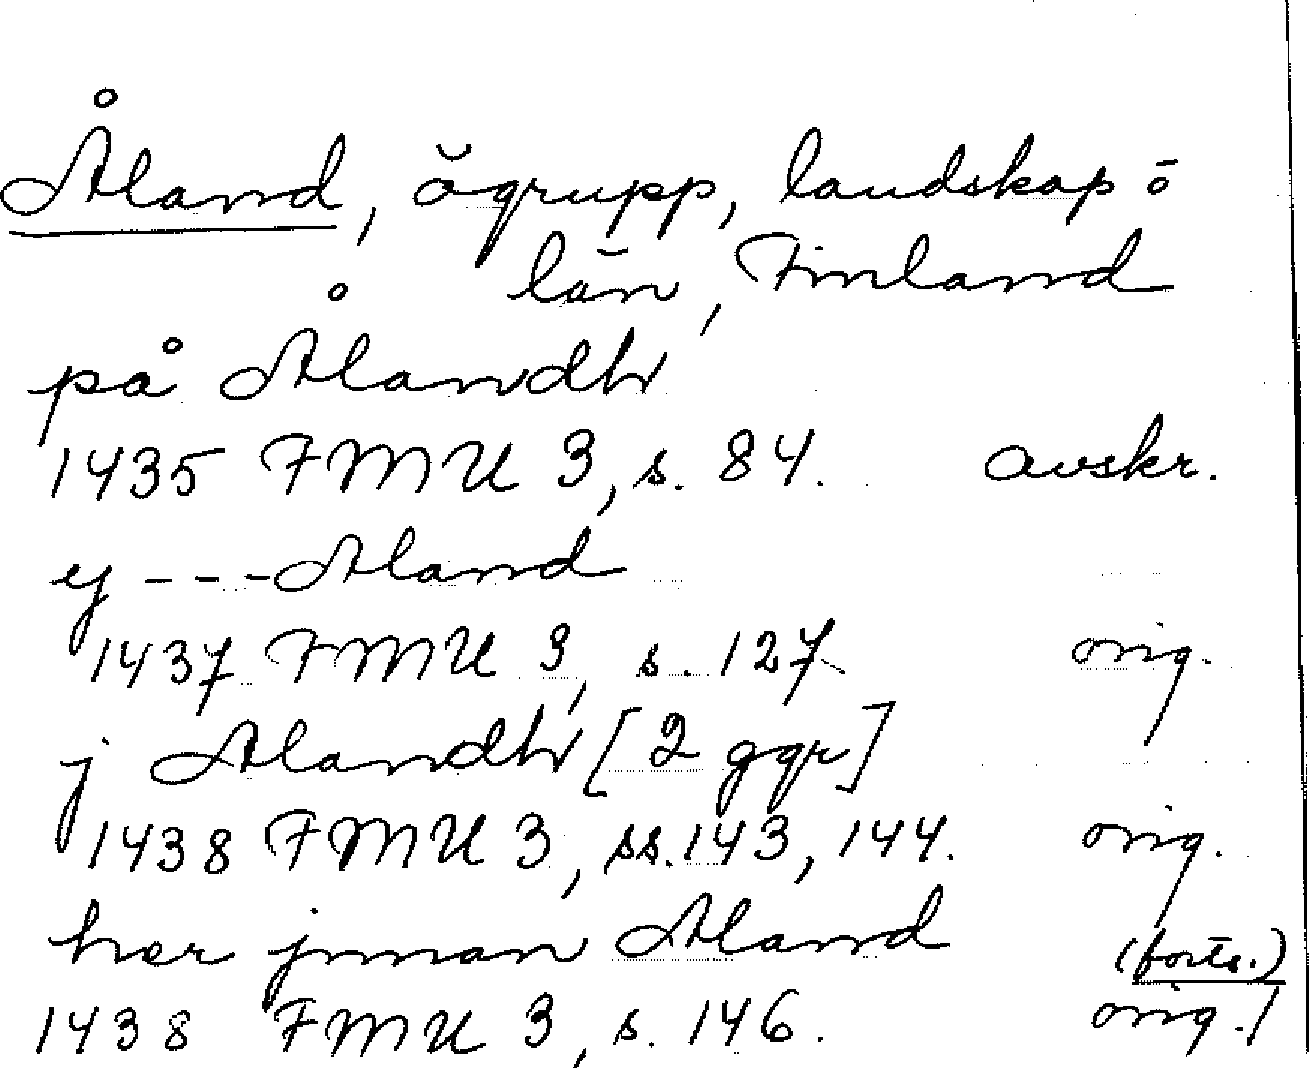 Åland, ögrupp, landskap o
län, Finland
på Ålandh
1435 FMU 3, s. 84. avskr.
ej --- Aland
1437 FMU 3, s. 127 orig.
j Alandh [2 ggr]
1438 FMU 3, ss. 143, 144. orig.
her jnnan Aland
(forts.)
1438 FMU 3, s. 146. orig.